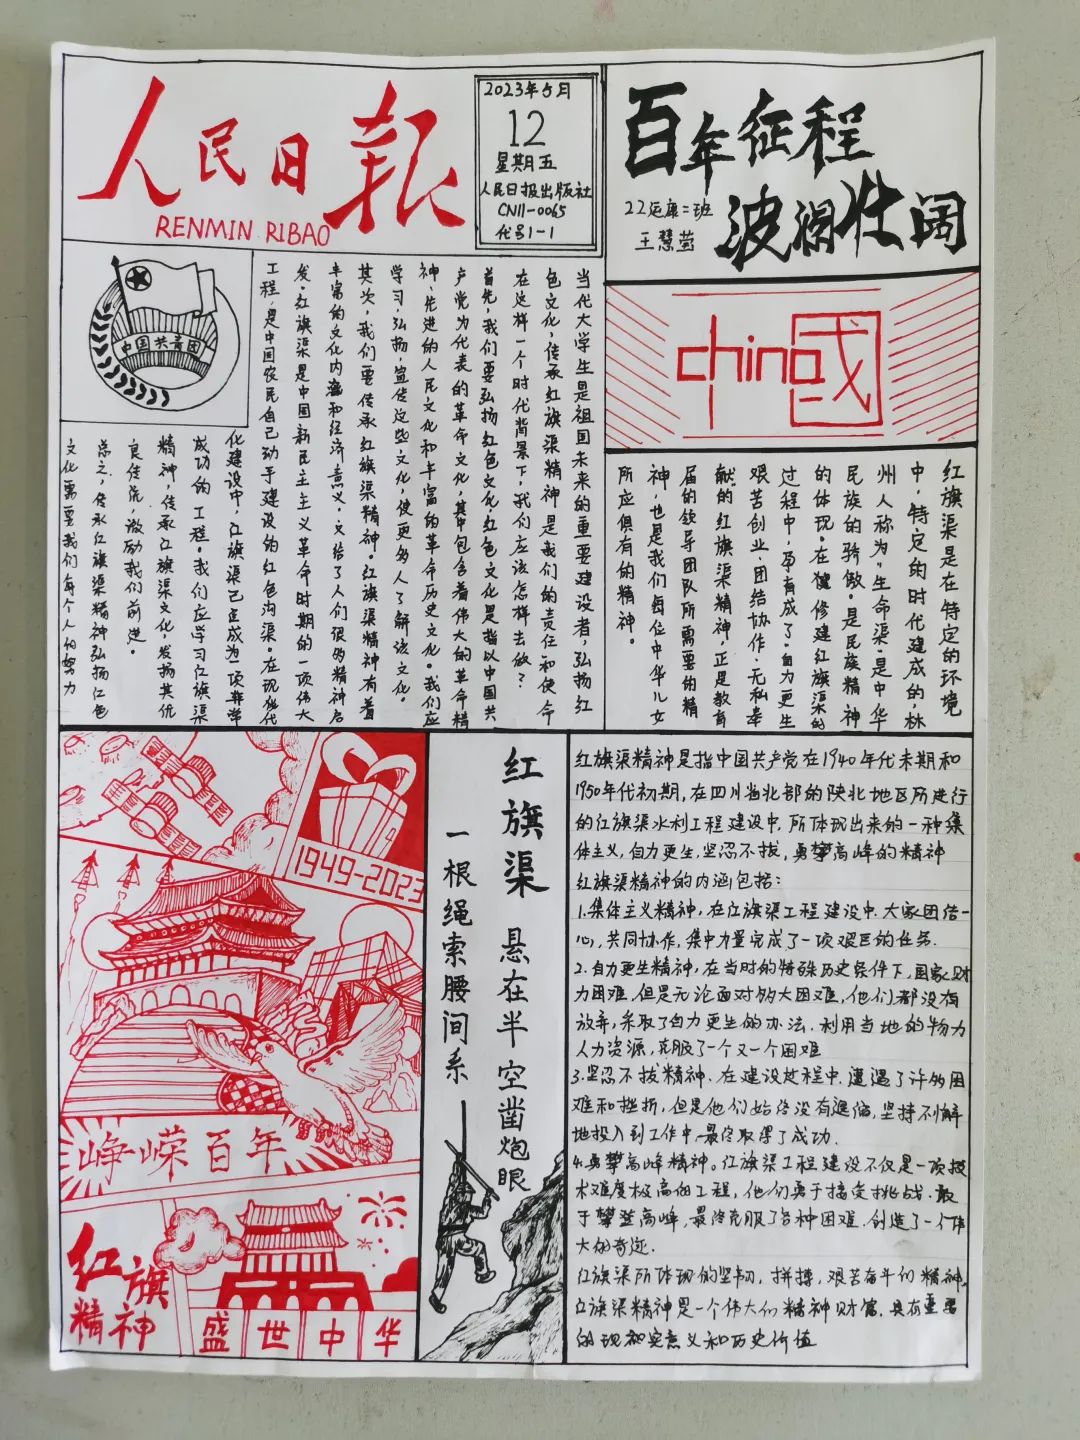 人民日报
RENMIN RIBAO
2023年5月
12
星期五
人民日报出版社
CN11-0065
代号1-1
百年征程
波澜壮阔
22运康二班
王慧茵
中国共青团
当代大学生是祖国未来的重要建设者,弘扬红
色文化,传承红旗渠精神是我们的责任和使命
在这样一个时代背景下,我们应该怎样去做?
首先,我们要弘扬红色文化,红色文化是指以中国共
产党为代表的革命文化,其中包含着伟大的革命精
神、先进的人民文化和丰富的革命历史文化。我们应
学习、弘扬、宣传这些文化,使更多人了解该文化。
其次,我们要传承红旗渠精神。红旗渠精神有着
丰富的文化内涵和经济意义,又给了人们很多精神启
发。红旗渠是中国新民主主义革命时期的一项伟大
工程,是中国农民自己动手建设的红色沟渠。在现代
化建设中,红旗渠已变成为一项非常
成功的工程。我们应学习红旗渠
精神,传承红旗渠文化,发扬其优
良传统,激励我们前进。
总之,传承红旗渠精神弘扬红色
文化需要我们每个人的努力
china国
红旗渠是在特定的环境
中,特定的时代建成的,林
州人称为"生命渠"是中华
民族的骄傲。是民族精神
的体现。在修建红旗渠的
过程中,孕育成了"自力更生
艰苦创业、团结协作、无私奉
献的红旗渠精神,正是教育
届的领导团队所需要的精
神,也是我们每位中华儿女
所应俱有的精神。
1949-2023
峥嵘百年
红旗
精神
盛世中华
红旗渠 悬在半空凿炮眼
一根绳索腰间系
红旗渠精神是指中国共产党在1940年代末期和
1950年代初期,在四川省北部的陕北地区所进行
的红旗渠水利工程建设中.所体现出来的一种集
体主义,自力更生,坚忍不拔,勇攀高峰的精神
红旗渠精神的内涵包括:
1.集体主义精神,在红旗渠工程建设中.大家团结一
心,共同协作,集中力量完成了一项艰巨的任务.
2.自力更生精神,在当时的特殊历史条件下,国家财
力困难,但是无论面对多大困难,他们都没有
放弃,采取了自力更生的办法.利用当地的物力
人力资源,克服了一个又一个困难
3.坚忍不拔精神.在建设过程中.遭遇了许多困
难和挫折,但是他们始终没有退缩,坚持不懈
地投入到工作中.最终取得了成功.
4.勇攀高峰精神。红旗渠工程建设不仅是一项技
术难度极高的工程,他们勇于接受挑战.敢
于攀登高峰,最终克服了各种困难.创造了一个伟
大的奇迹.
红旗渠所体现的坚韧,拼搏,艰苦奋斗的精神。
红旗渠精神是一个伟大的精神财富.具有重要
的现实意义和历史价值